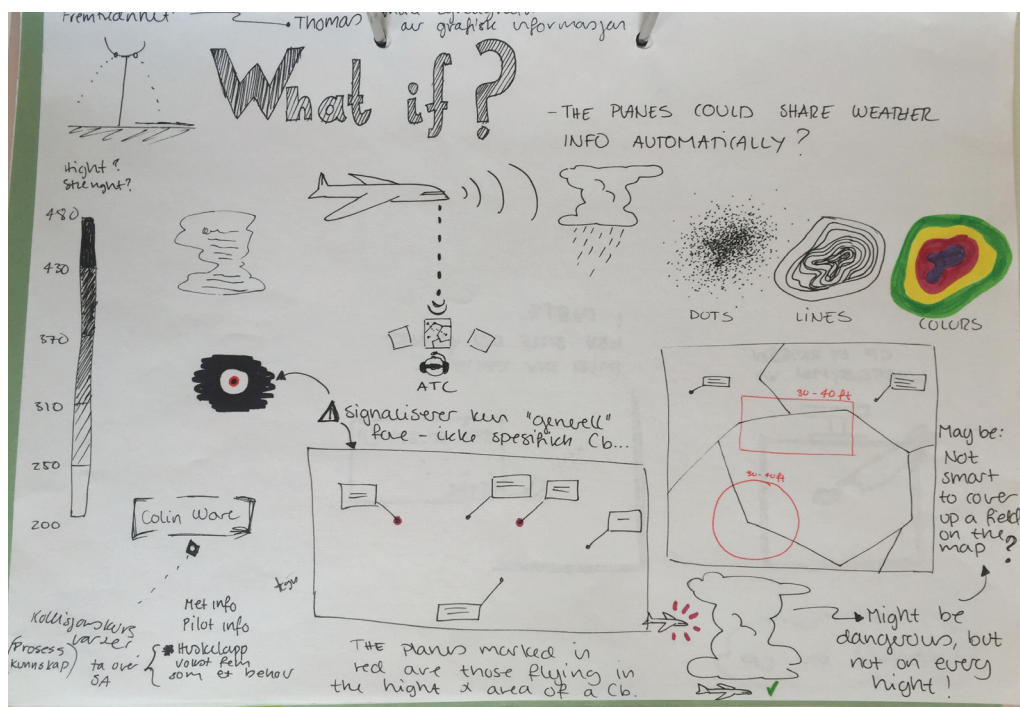 Fremtidannet
Thomas
av grafisk informasjon
What if?
- THE PLANES COULD SHARE WEATHER
INFO AUTOMATICALLY?
Hight?
Strenght?
480
430
370
310
250
200
DOTS
LINES
COLORS
ATC
signaliserer kun "generell"
fare - ikke spesifikk Cb...
30-40 ft
30-40 ft
May be:
Not
smart
to cover
up a field
on the
map?
Colin Ware
Kollisjonskurs
varsler
(Prosess
kunnskap)
ta over
SA
Met info
Pilot info
Huskelapp
vokst frem
som et behov
THE Planes marked in
red are those flying in
the hight & area of a Cb.
Might be
dangerous, but
not on every
hight!